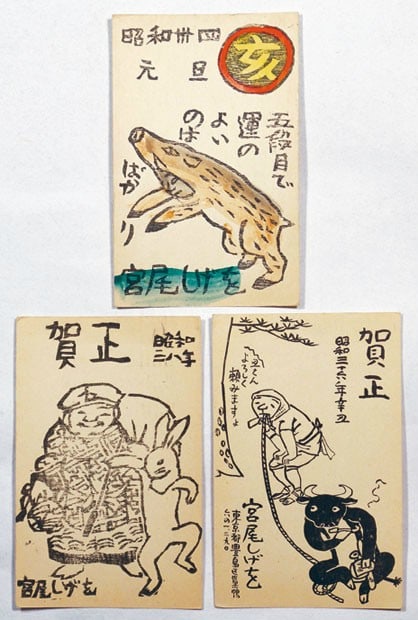 昭和卅四
元旦
亥
五段目で
運の
よい
のは
ばかり
宮尾しげを
賀正
昭和
三八年
宮尾しげを
賀正
昭和三十六年辛丑
丑くん
よろしく
頼みますよ
宮尾しげを
東京都豊島区